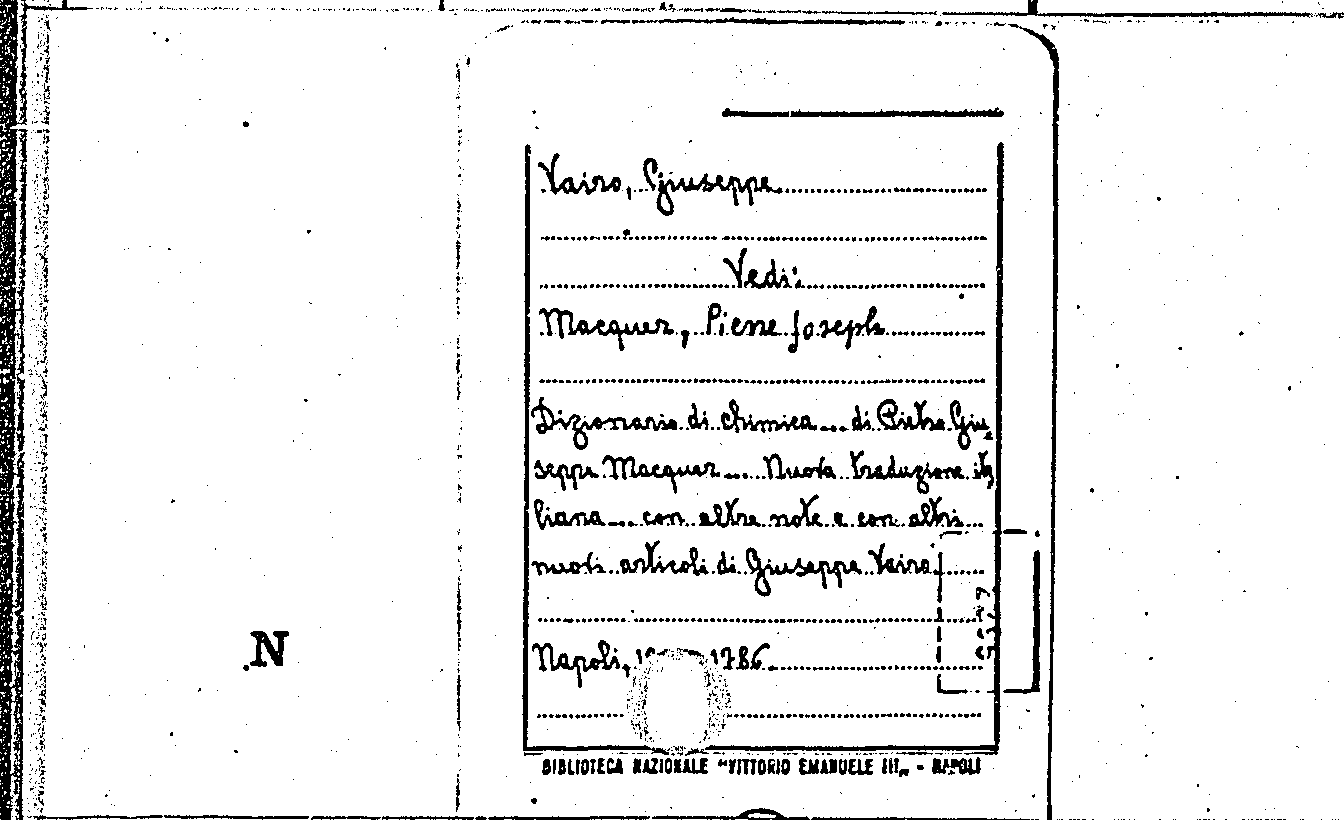 Vairo, Giuseppe
Vedi:
Macquer, Pierre Joseph
Dizionario di chimica... di Pietro Giu,
seppe Macquer... Nuova traduzione ita
liana... con altre note e con altri
nuovi articoli di Giuseppe Vairo
N
Napoli, 1786.
BIBLIOTECA NAZIONALE "VITTORIO EMANUELE III„ - NAPOLI